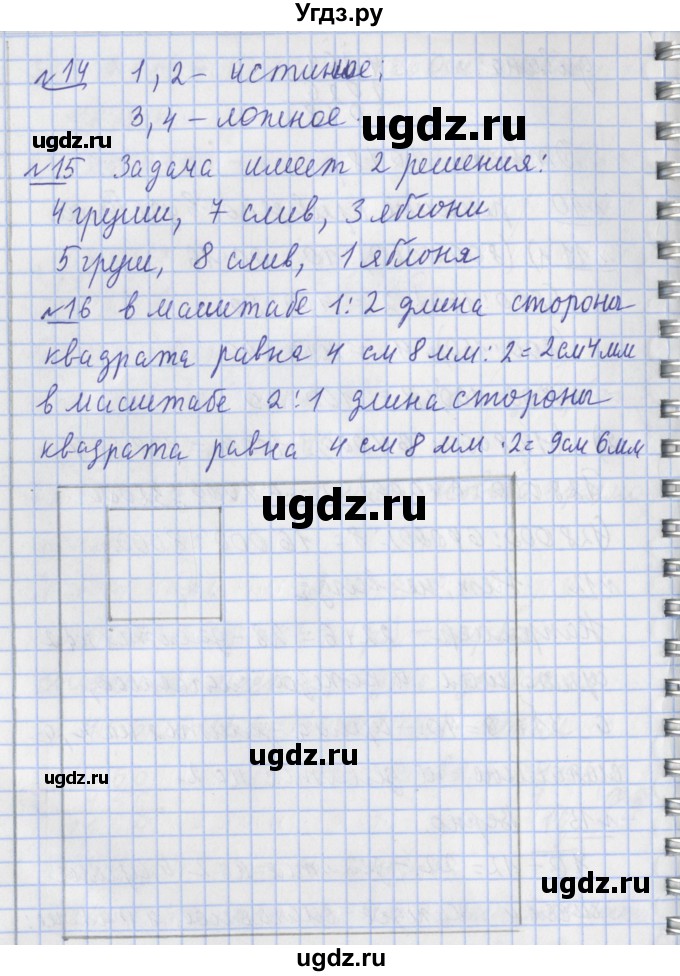 Угдз.ру
№14 1, 2 - истинное;
3, 4 - ложное.
ugdz.ru ugdz.ru
№15 Задача имеет 2 решения:
4 груши, 7 слив, 3 яблони
5 груш, 8 слив, 1 яблоня
№16 в масштабе 1:2 длина стороны
квадрата равна 4 см 8 мм : 2 = 2 см 4 мм
в масштабе 2:1 длина стороны
ugdz.ru
квадрата равна 4 см 8 мм · 2 = 9 см 6 мм
ugdz.ru
ugdz.ru
ugdz.ru
ugdz.ru
ugdz.ru